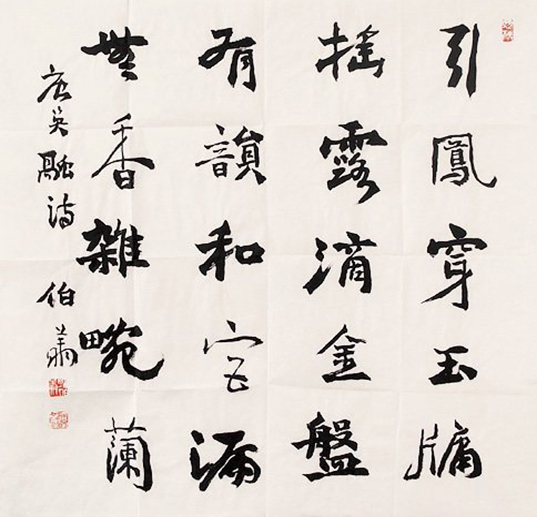 引鳳穿玉牖
摇露滴金盤
有韻和宫漏
無香雜畹蘭
唐吳融詩
伯蕭